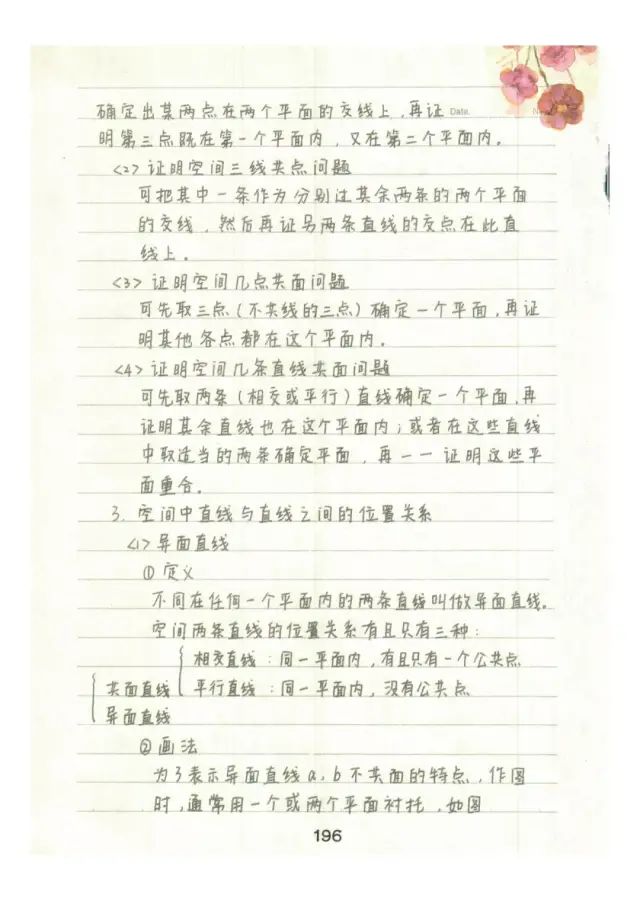 Date.
确定出某两点在两个平面的交线上，再证
明第三点既在第一个平面内，又在第二个平面内。
<2> 证明空间三线共点问题
可把其中一条作为分别过其余两条的两个平面
的交线，然后再证另两条直线的交点在此直
线上。
<3> 证明空间几点共面问题
可先取三点（不共线的三点）确定一个平面，再证
明其他各点都在这个平面内。
<4> 证明空间几条直线共面问题
可先取两条（相交或平行）直线确定一个平面，再
证明其余直线也在这个平面内；或者在这些直线
中取适当的两条确定平面，再一一证明这些平
面重合。
3. 空间中直线与直线之间的位置关系
<1> 异面直线
① 定义
不同在任何一个平面内的两条直线叫做异面直线。
空间两条直线的位置关系有且只有三种：
相交直线：同一平面内，有且只有一个公共点
共面直线 平行直线：同一平面内，没有公共点
异面直线
② 画法
为了表示异面直线a，b不共面的特点，作图
时，通常用一个或两个平面衬托，如图
196